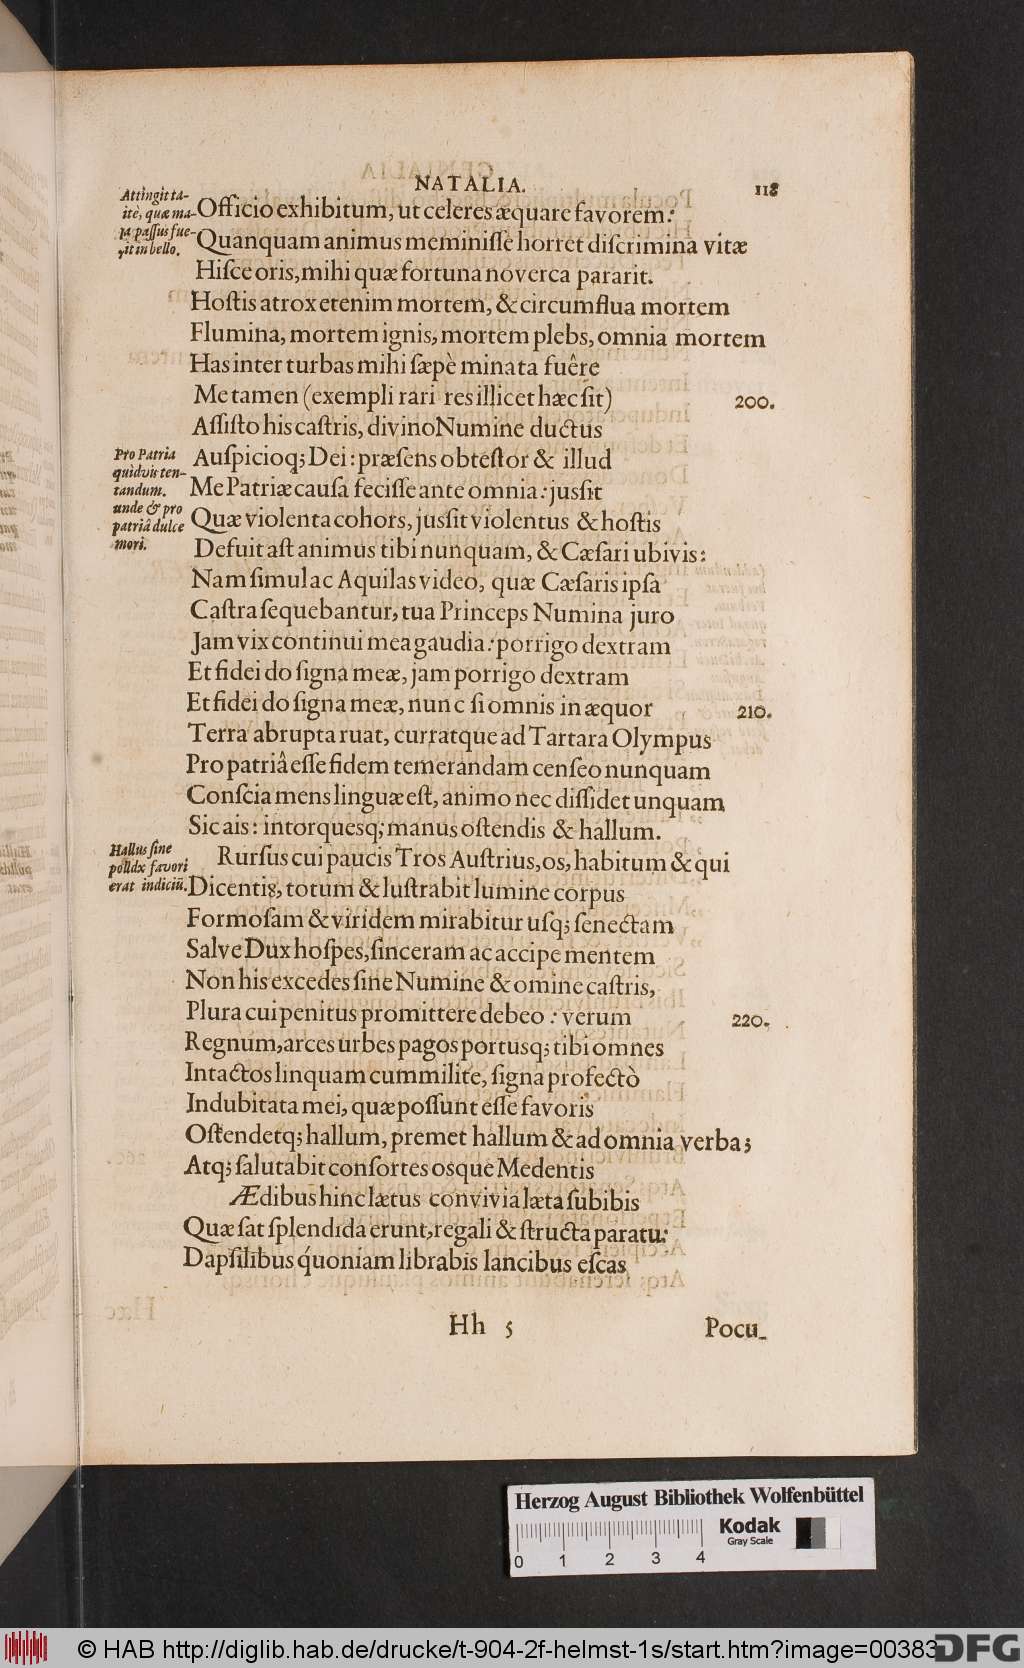 NATALIA. 118
Attingit ta-
itè, quæ ma-
la passus fue-
rit in bello.
Officio exhibitum, ut celeres æquare favorem:
Quanquam animus meminiſſe horret diſcrimina vitæ
Hiſce oris, mihi quæ fortuna noverca pararit.
Hoſtis atrox etenim mortem, & circumflua mortem
Flumina, mortem ignis, mortem plebs, omnia mortem
Has inter turbas mihi ſæpè minata fuêre
Me tamen (exempli rari res illicet hæc ſit) 200.
Aſſiſto his caſtris, divino Numine ductus
Pro Patria
quidvis ten-
tandum.
unde & pro
patriâ dulce
mori.
Auſpicioq; Dei: præſens obteſtor & illud
Me Patriæ cauſa feciſſe ante omnia: jusſit
Quæ violenta cohors, jusſit violentus & hoſtis
Defuit aſt animus tibi nunquam, & Cæſari ubivis:
Nam ſimul ac Aquilas video, quæ Cæſaris ipſa
Caſtra ſequebantur, tua Princeps Numina juro
Jam vix continui mea gaudia: porrigo dextram
Et fidei do ſigna meæ, jam porrigo dextram
Et fidei do ſigna meæ, nunc ſi omnis in æquor 210.
Terra abrupta ruat, curratque ad Tartara Olympus
Pro patriâ eſſe fidem temerandam cenſeo nunquam
Conſcia mens linguæ eſt, animo nec diſſidet unquam
Sic ais: intorquesq; manus oſtendis & hallum.
Hallus ſine
pollex favori
erat indiciū.
Rurſus cui paucis Tros Auſtrius, os, habitum & qui
Dicentis, totum & luſtrabit lumine corpus
Formoſam & viridem mirabitur uſq; ſenectam
Salve Dux hoſpes, ſinceram ac accipe mentem
Non his excedes ſine Numine & omine caſtris,
Plura cui penitus promittere debeo: verum 220.
Regnum, arces urbes pagos portusq; tibi omnes
Intactos linquam cum milite, ſigna profectò
Indubitata mei, quæ poſſunt eſſe favoris
Oſtendetq; hallum, premet hallum & ad omnia verba;
Atq; ſalutabit conſortes osque Medentis
Ædibus hinc lætus convivia læta ſubibis
Quæ ſat ſplendida erunt, regali & ſtructa paratu:
Dapſilibus quoniam librabis lancibus eſcas
Hh 5 Pocu-
Herzog August Bibliothek Wolfenbüttel
Kodak
Gray Scale
0 1 2 3 4
© HAB http://diglib.hab.de/drucke/t-904-2f-helmst-1s/start.htm?image=00383
DFG